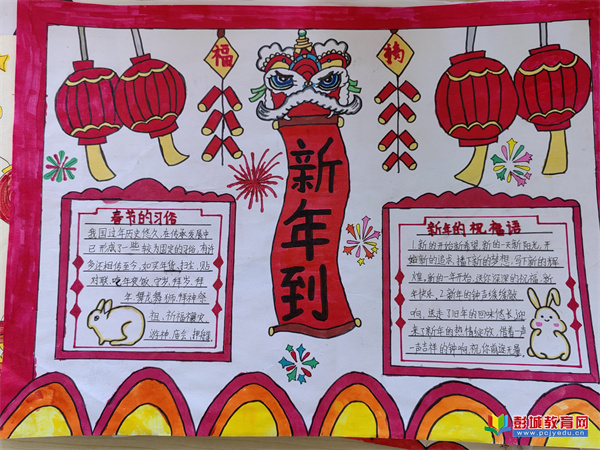 福
福
新年到
春节的习俗
我国过年历史悠久,在传承发展中
已形成了一些较为固定的习俗,有许
多还相传至今,如买年货,扫尘,贴
对联,吃年夜饭,守岁,拜岁,拜
年,舞龙舞狮,拜神祭
祖,祈福攘灾,
游神,庙会,押舟
新年的祝福语
1.新的开始新希望,新的一天新阳光,开
始新的追求,播下新的梦想,写下新的辉
煌,新的一年开始,送你深深的祝福,新
年快乐.2.新年的钟声缓缓敲
响,送走了旧年的回味悠长,迎
来了新年的热情绽放,借着一声
一声吉祥的钟响,祝你前途无量.
彭城教育网
www.pcjyedu.cn